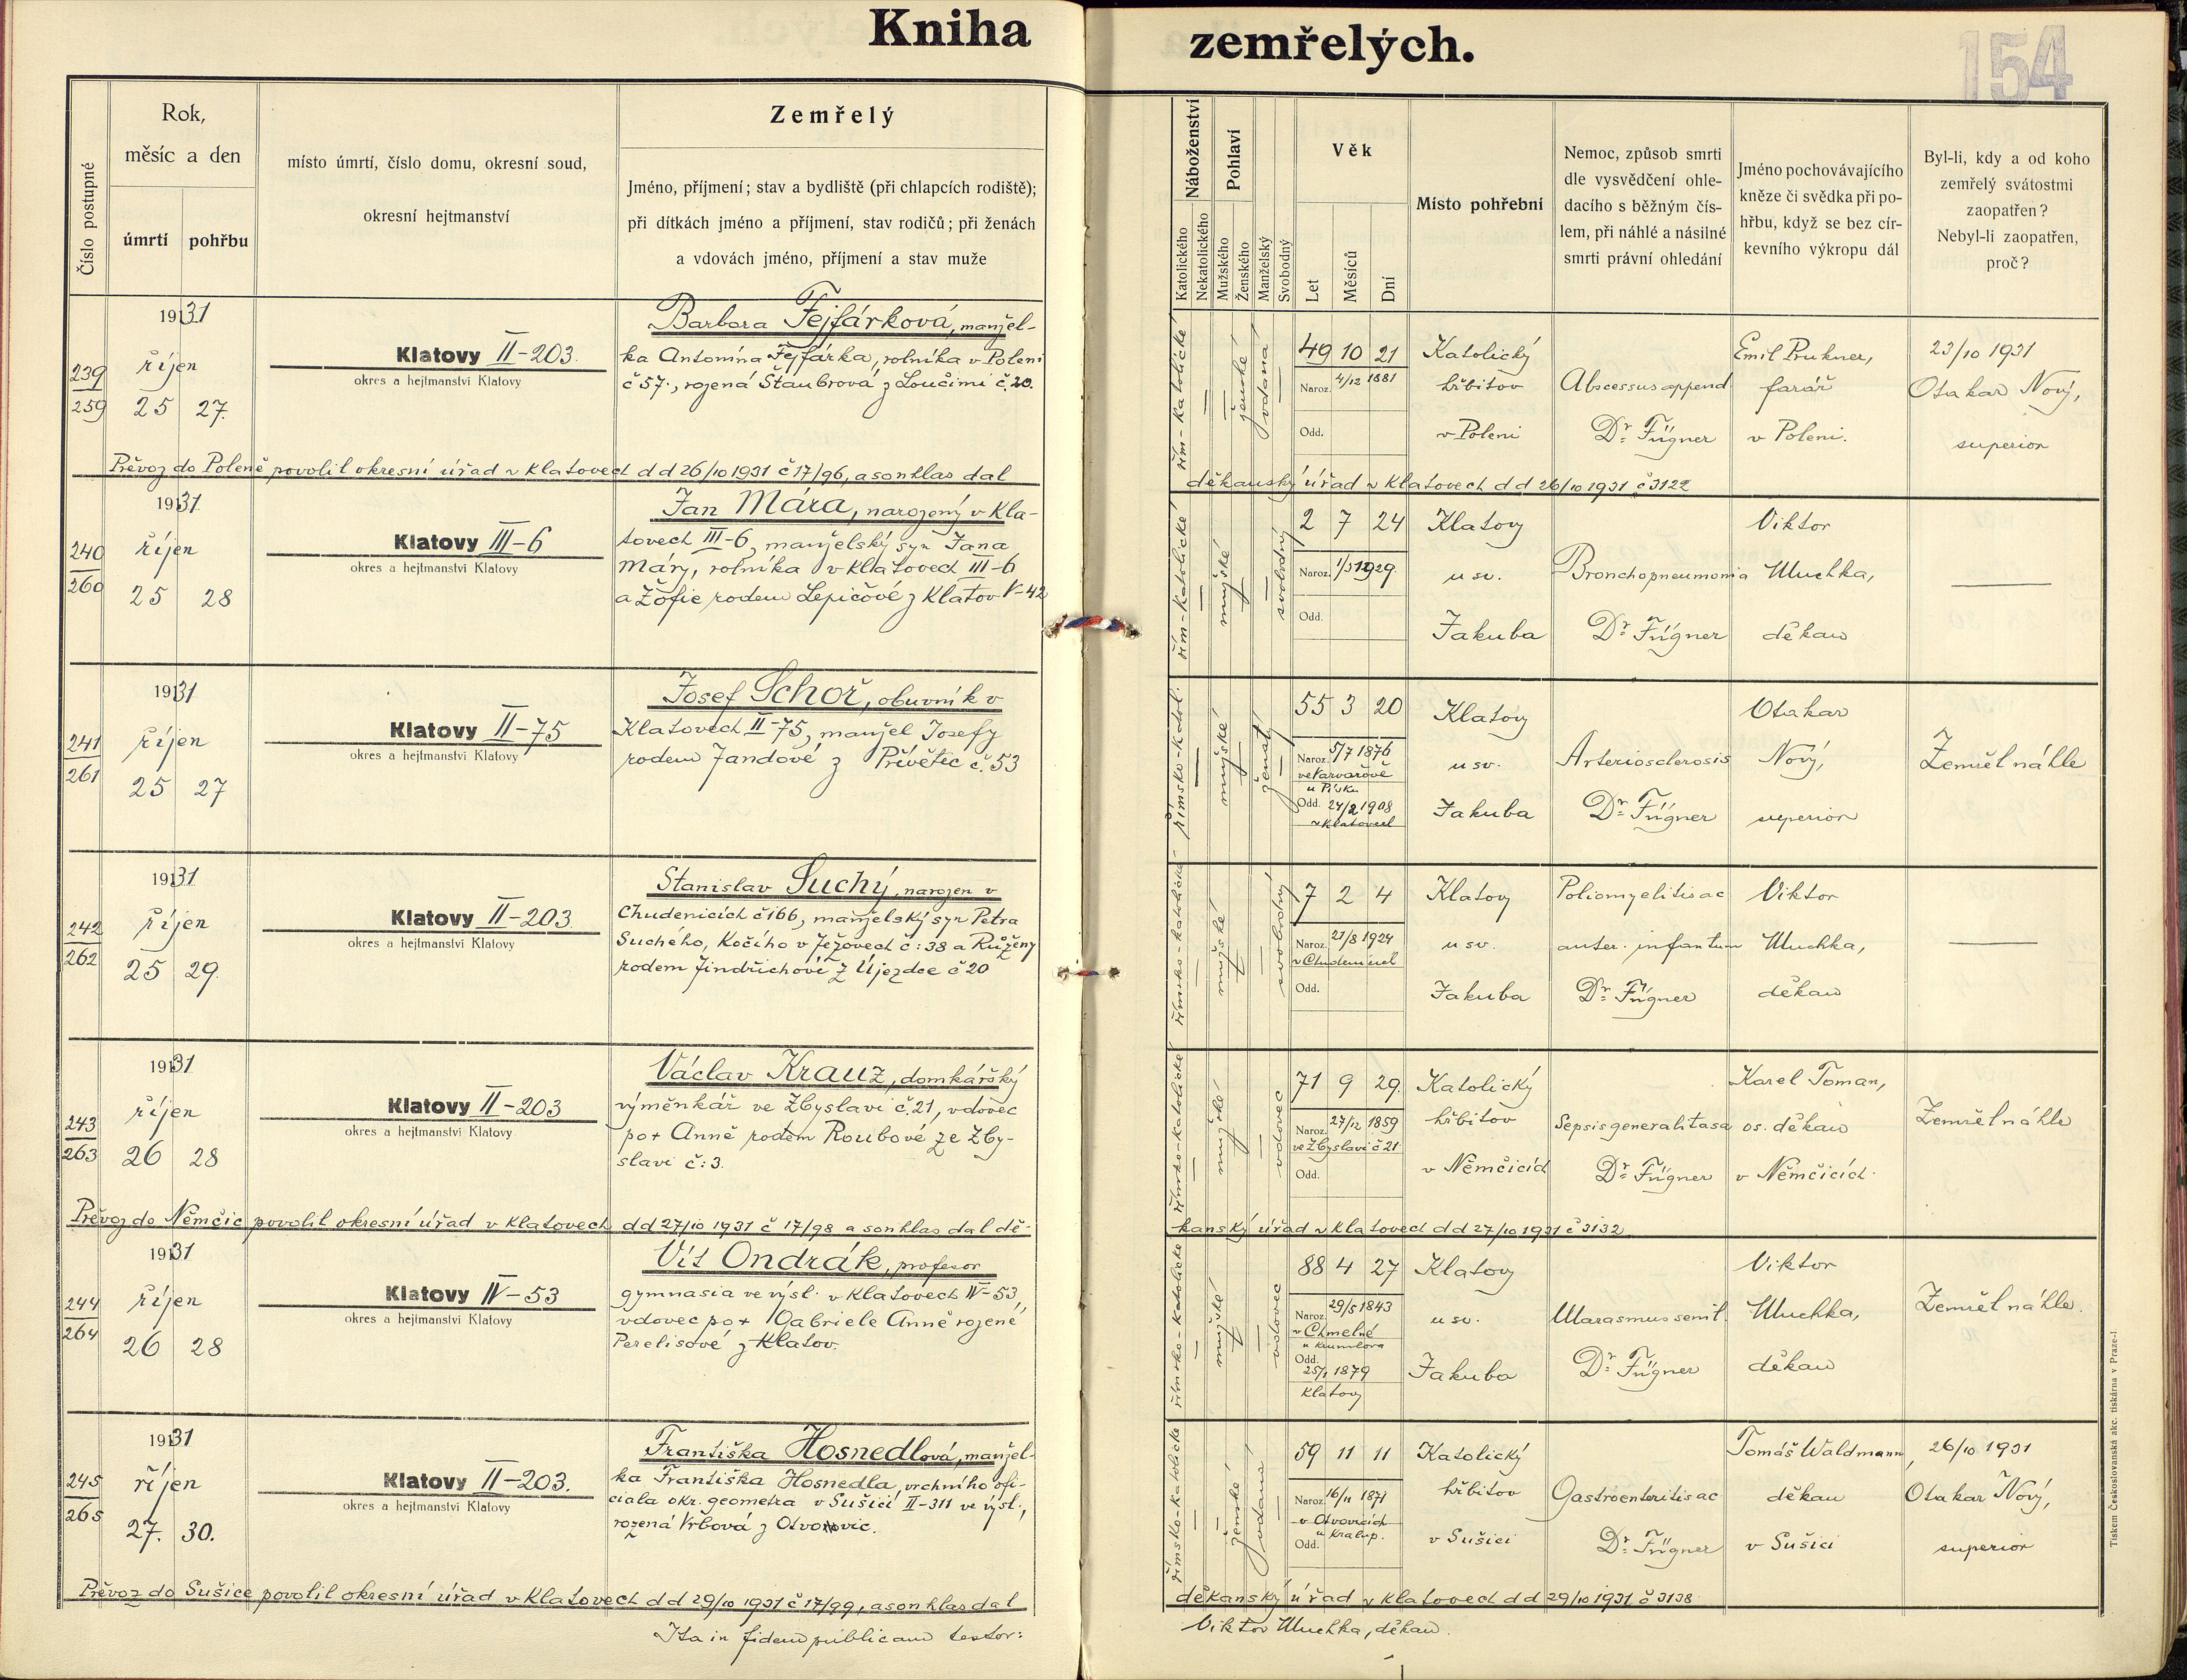 Kniha zemřelých.
154
Číslo postupné
Rok,
měsíc a den
úmrtí
pohřbu
místo úmrtí, číslo domu, okresní soud,
okresní hejtmanství
Zemřelý
Jméno, příjmení; stav a bydliště (při chlapcích rodiště);
při dítkách jméno a příjmení, stav rodičů; při ženách
a vdovách jméno, příjmení a stav muže
Náboženství
Katolického
Nekatolického
Pohlaví
Mužského
Ženského
Manželský
Svobodný
Věk
Let
Měsíců
Dní
Místo pohřební
Nemoc, způsob smrti
dle vysvědčení ohle-
dacího s běžným čís-
lem, při náhlé a násilné
smrti právní ohledání
Jméno pochovávajícího
kněze či svědka při po-
hřbu, když se bez cír-
kevního výkropu dál
Byl-li, kdy a od koho
zemřelý svátostmi
zaopatřen?
Nebyl-li zaopatřen,
proč?
239
259
1931
říjen
25 27.
Klatovy II-203.
okres a hejtmanství Klatovy
Barbora Fejfárková, manžel-
ka Antonína Fejfárka, rolníka v Poleni
č 57., rozená Štaubrová z Loučimi č. 20.
řím-katolické
ženské
vdaná
49 10 21
Naroz. 4/12 1881
Odd.
Katolický
hřbitov
v Poleni
Abscessus append
Dr. Fügner
Emil Prukner,
farář
v Poleni.
23/10 1931
Otakar Nový,
superior
Převoz do Poleně povolil okresní úřad v Klatovech dd 26/10 1931 č 17/96, a souhlas dal
děkanský úřad v Klatovech dd 26/10 1931 č 3122
240
260
1931
říjen
25 28
Klatovy III-6
okres a hejtmanství Klatovy
Jan Mára, narozený v Kla-
tovech III-6, manželský syn Jana
Máry, rolníka v Klatovech III-6
a Žofie rodem Lepičové z Klatov V-42
řím-katolické
mužské
svobodný
2 7 24
Naroz. 1/3 1929.
Odd.
Klatovy
u sv.
Jakuba
Bronchopneumonia
Dr. Fügner
Viktor
Muchka,
děkan
241
261
1931
říjen
25 27
Klatovy II-75
okres a hejtmanství Klatovy
Josef Schoř, obuvník v
Klatovech II-75, manžel Josefy
rodem Jandové z Přívětic č. 53
římsko-katol.
mužské
ženatý
55 3 20
Naroz. 5/7 1876
ve Varvařově
u Písku
Odd. 24/2 1908
v Klatovech
Klatovy
u sv.
Jakuba
Arteriosclerosis
Dr. Fügner
Otakar
Nový,
superior
Zemřel náhle
242
262
1931
říjen
25 29.
Klatovy II-203.
okres a hejtmanství Klatovy
Stanislav Suchý, narozen v
Chudenicích č 166, manželský syn Petra
Suchého, kočího v Ježovech č: 38 a Růženy
rodem Jindřichové z Újezdce č 20
římsko-katolické
mužské
svobodný
7 2 4
Naroz. 21/8 1924
v Chudenicích
Odd.
Klatovy
u sv.
Jakuba
Poliomyelitis ac
anter. infantum
Dr. Fügner
Viktor
Muchka,
děkan
243
263
1931
říjen
26 28
Klatovy II-203
okres a hejtmanství Klatovy
Václav Krauz, domkářský
výměnkář ve Zbyslavi č. 21, vdovec
po + Anně rodem Roubové ze Zby-
slavi č: 3.
římsko-katolické
mužské
vdovec
71 9 29.
Naroz. 27/12 1859
ve Zbyslavi č 21
Odd.
Katolický
hřbitov
v Němčicích
Sepsis generalitasa
Dr. Fügner
Karel Toman,
os. děkan
v Němčicích.
Zemřel náhle
Převoz do Němčic povolil okresní úřad v Klatovech dd 27/10 1931 č 17/98 a souhlas dal dě-
kanský úřad v Klatovech dd 27/10 1931 č 3132
244
264
1931
říjen
26 28
Klatovy IV-53
okres a hejtmanství Klatovy
Vít Ondrák, profesor
gymnasia ve výsl. v Klatovech IV-53,
vdovec po + Gabriele Anně rozené
Perelisové z Klatov.
římsko-katolické
mužské
vdovec
88 4 27
Naroz. 29/5 1843
v Chmelné
u Krumlova
Odd.
25/1 1879
Klatovy
Klatovy
u sv.
Jakuba
Marasmus senil.
Dr. Fügner
Viktor
Muchka,
děkan
Zemřel náhle.
245
265
1931
říjen
27. 30.
Klatovy II-203.
okres a hejtmanství Klatovy
Františka Hosnedlová, manžel-
ka Františka Hosnedla, vrchního ofi-
ciala okr. geometra v Sušici II-311 ve výsl.,
rozená Vrbová z Otvovic.
římsko-katolické
ženské
vdaná
59 11 11
Naroz. 16/11 1871
v Otvovicích
u Kralup.
Odd.
Katolický
hřbitov
v Sušici
Gastroenteritis ac
Dr. Fügner
Tomáš Waldmann,
děkan
v Sušici
26/10 1931
Otakar Nový,
superior
Převoz do Sušice povolil okresní úřad v Klatovech dd 29/10 1931 č 17/99, a souhlas dal
děkanský úřad v Klatovech dd 29/10 1931 č 3138
Ita in fidem publicam testor:
Viktor Muchka, děkan.
Tiskem Československá akc. tiskárna v Praze-I.